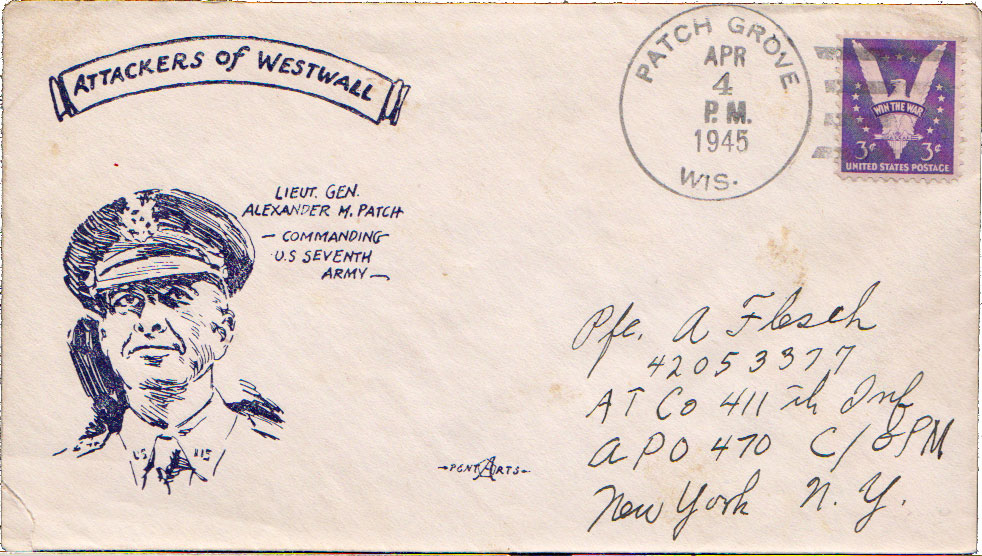 ATTACKERS of WESTWALL
LIEUT. GEN.
ALEXANDER M. PATCH
— COMMANDING
U.S SEVENTH
ARMY —
U.S
PENT ARTS
PATCH GROVE
APR
4
P.M.
1945
WIS.
WIN THE WAR
3¢ 3¢
UNITED STATES POSTAGE
Pfc. A Flesch
42053377
AT Co 411th Inf
APO 470 C/O PM
New York N.Y.